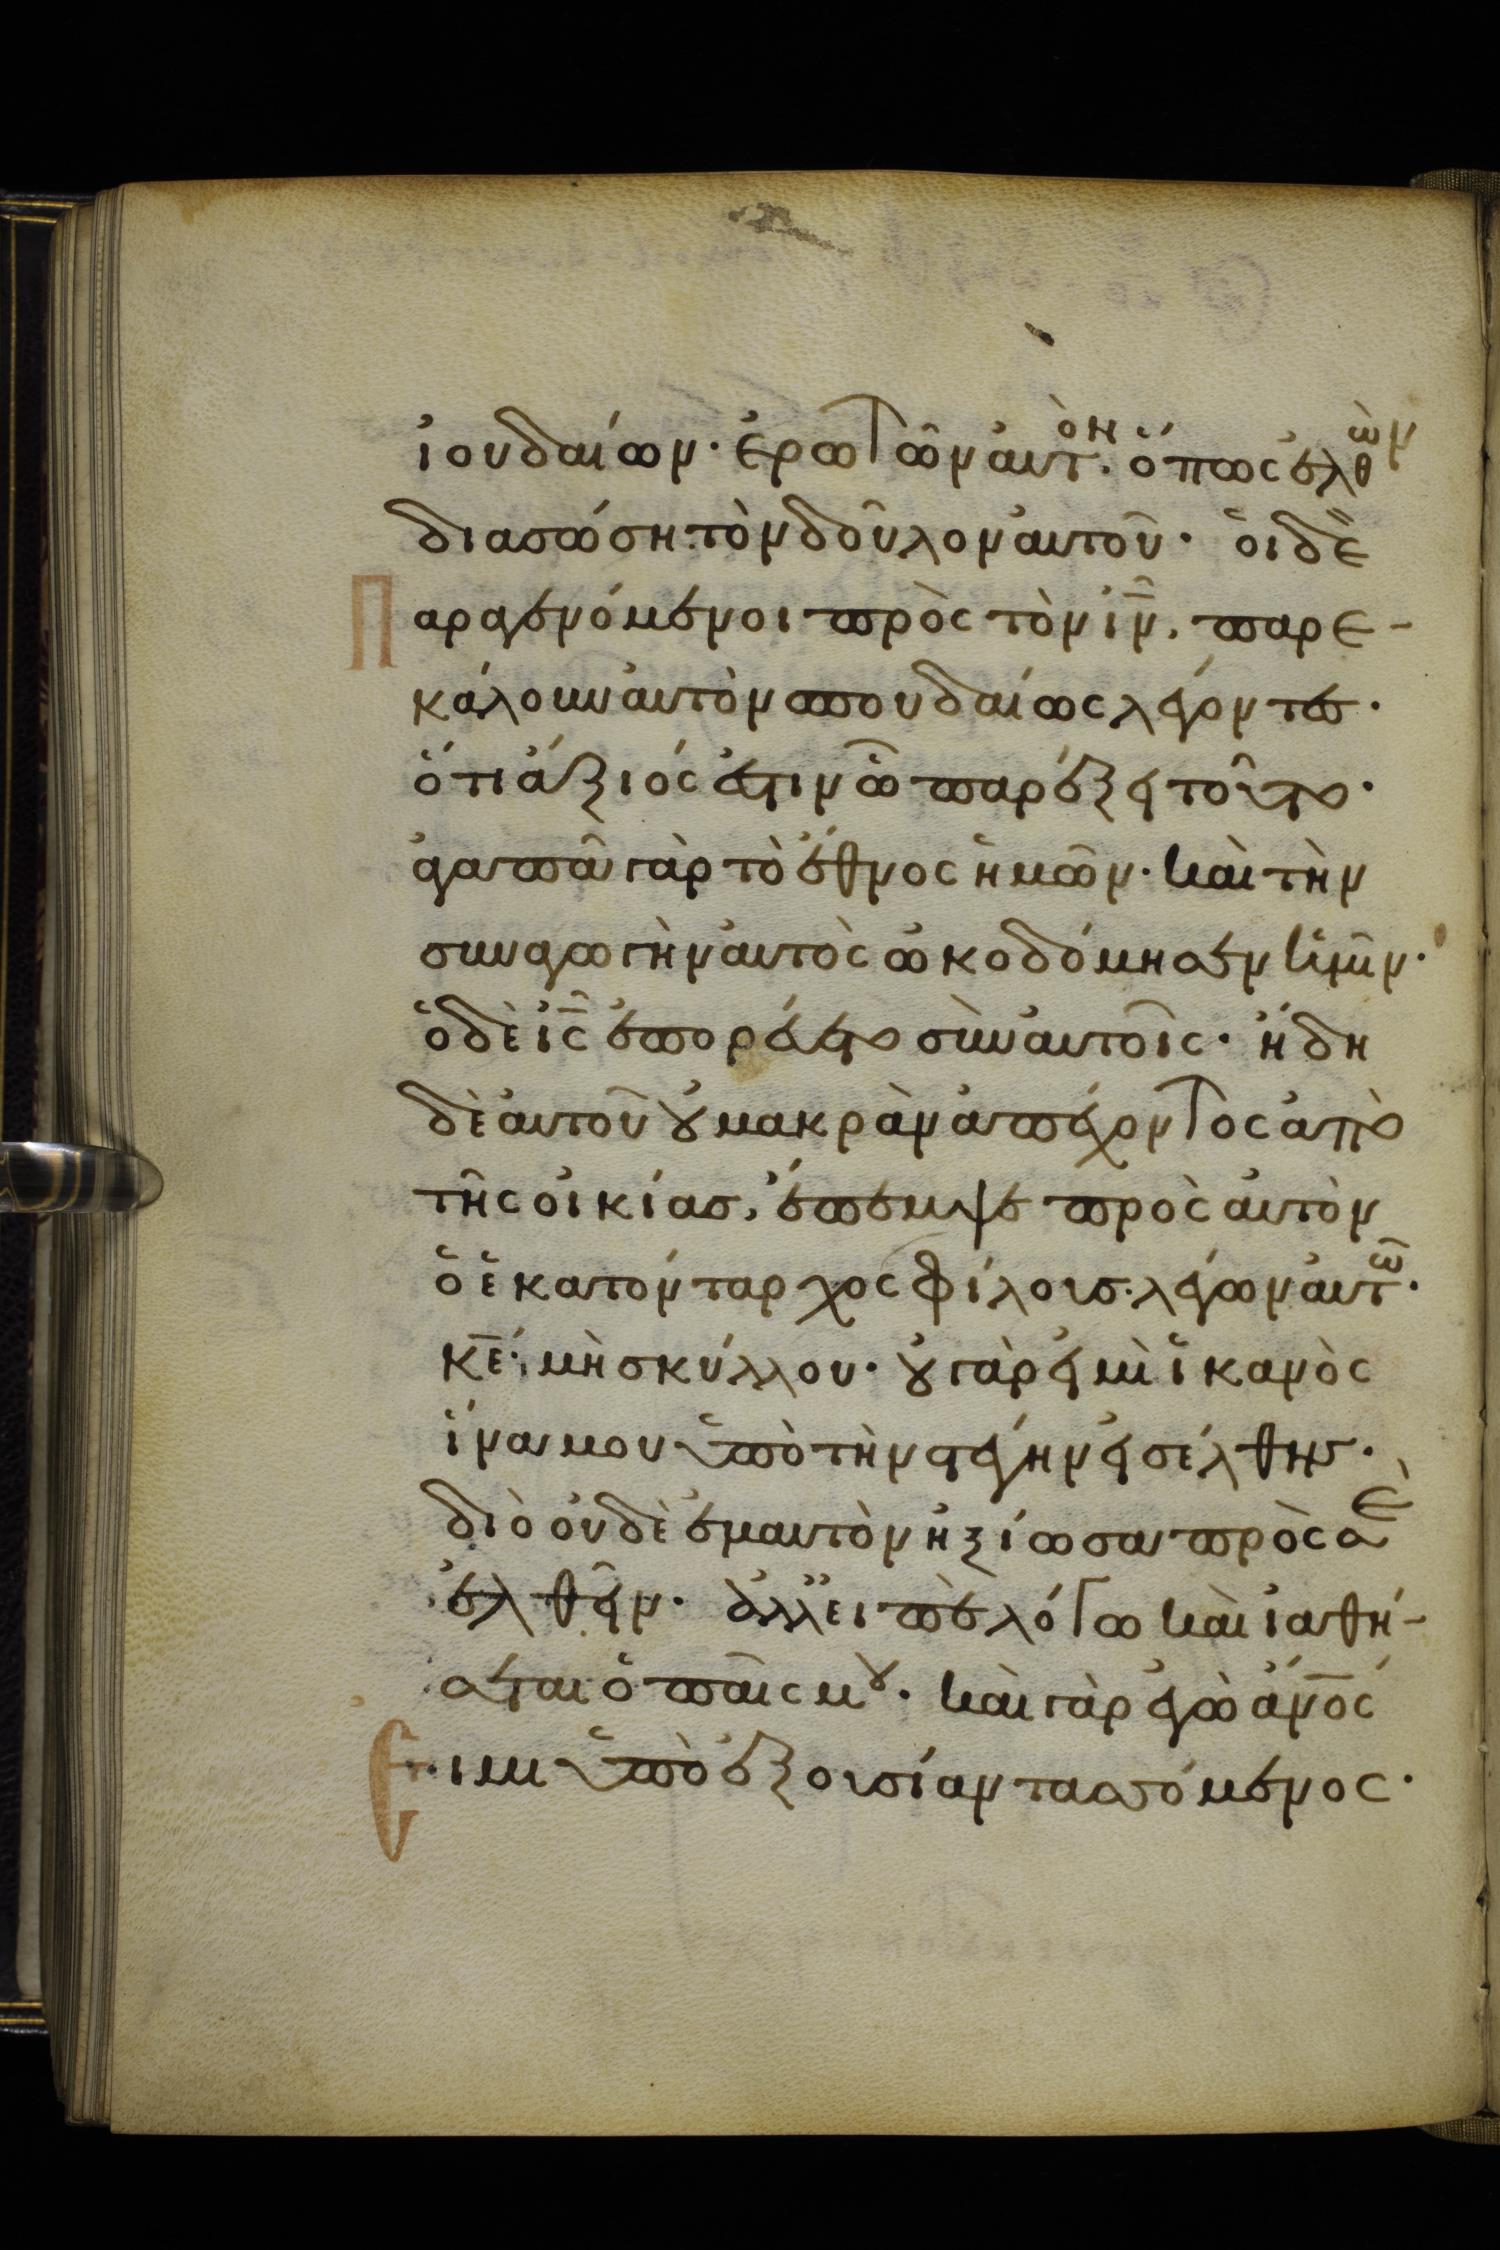 ἰουδαίων· ἐρωτῶν αὐτὸν· ὅπως ἐλθὼν
διασώση τὸν δοῦλον αὐτοῦ· οἱ δὲ
Παραγενόμενοι πρὸς τὸν ἰν̅, παρε-
κάλουν αὐτὸν σπουδαίως λέγοντες·
ὅτι ἄξιός ἐστιν ὧ παρέξει τοῦτο·
ἀγαπᾶ γὰρ τὸ ἔθνος ἡμῶν· καὶ τὴν
συναγωγὴν αὐτὸς ὠκοδόμησεν ἡμῖν·
ὁ δὲ ἰς̅ ἐπορεύετο σὺν αὐτοῖς· ἤδη
δὲ αὐτοῦ οὐ μακρὰν ἀπέχοντος ἀπὸ
τῆς οἰκίας, ἔπεμψε πρὸς αὐτὸν
ὁ ἑκατόνταρχος φίλους· λέγων αὐτῶ·
κε̅· μὴ σκύλλου· οὐ γὰρ εἰμὶ ἱκανὸς
ἵνα μου ὑπὸ τὴν στέγην εἰσέλθης·
διὸ οὐδὲ ἐμαυτὸν ἠξίωσα πρὸς σὲ
ἐλθεῖν· ἀλλ' εἰπὲ λόγω καὶ ἰαθή-
σεται ὁ παῖς μου· καὶ γὰρ ἐγὼ ἄν̅ός
Εἰμι ὑπὸ ἐξουσίαν τασσόμενος·